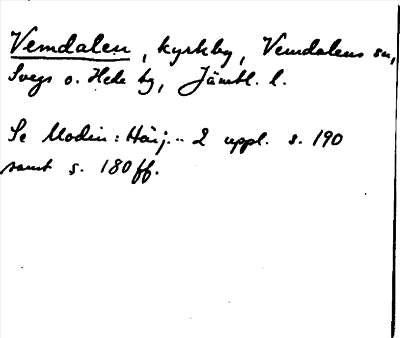 Vemdalen, kyrkby, Vemdalens sn,
Svegs o. Hede tg, Jämtl. l.
Se Modin: Härj... 2 uppl. s. 190
samt s. 180 ff.